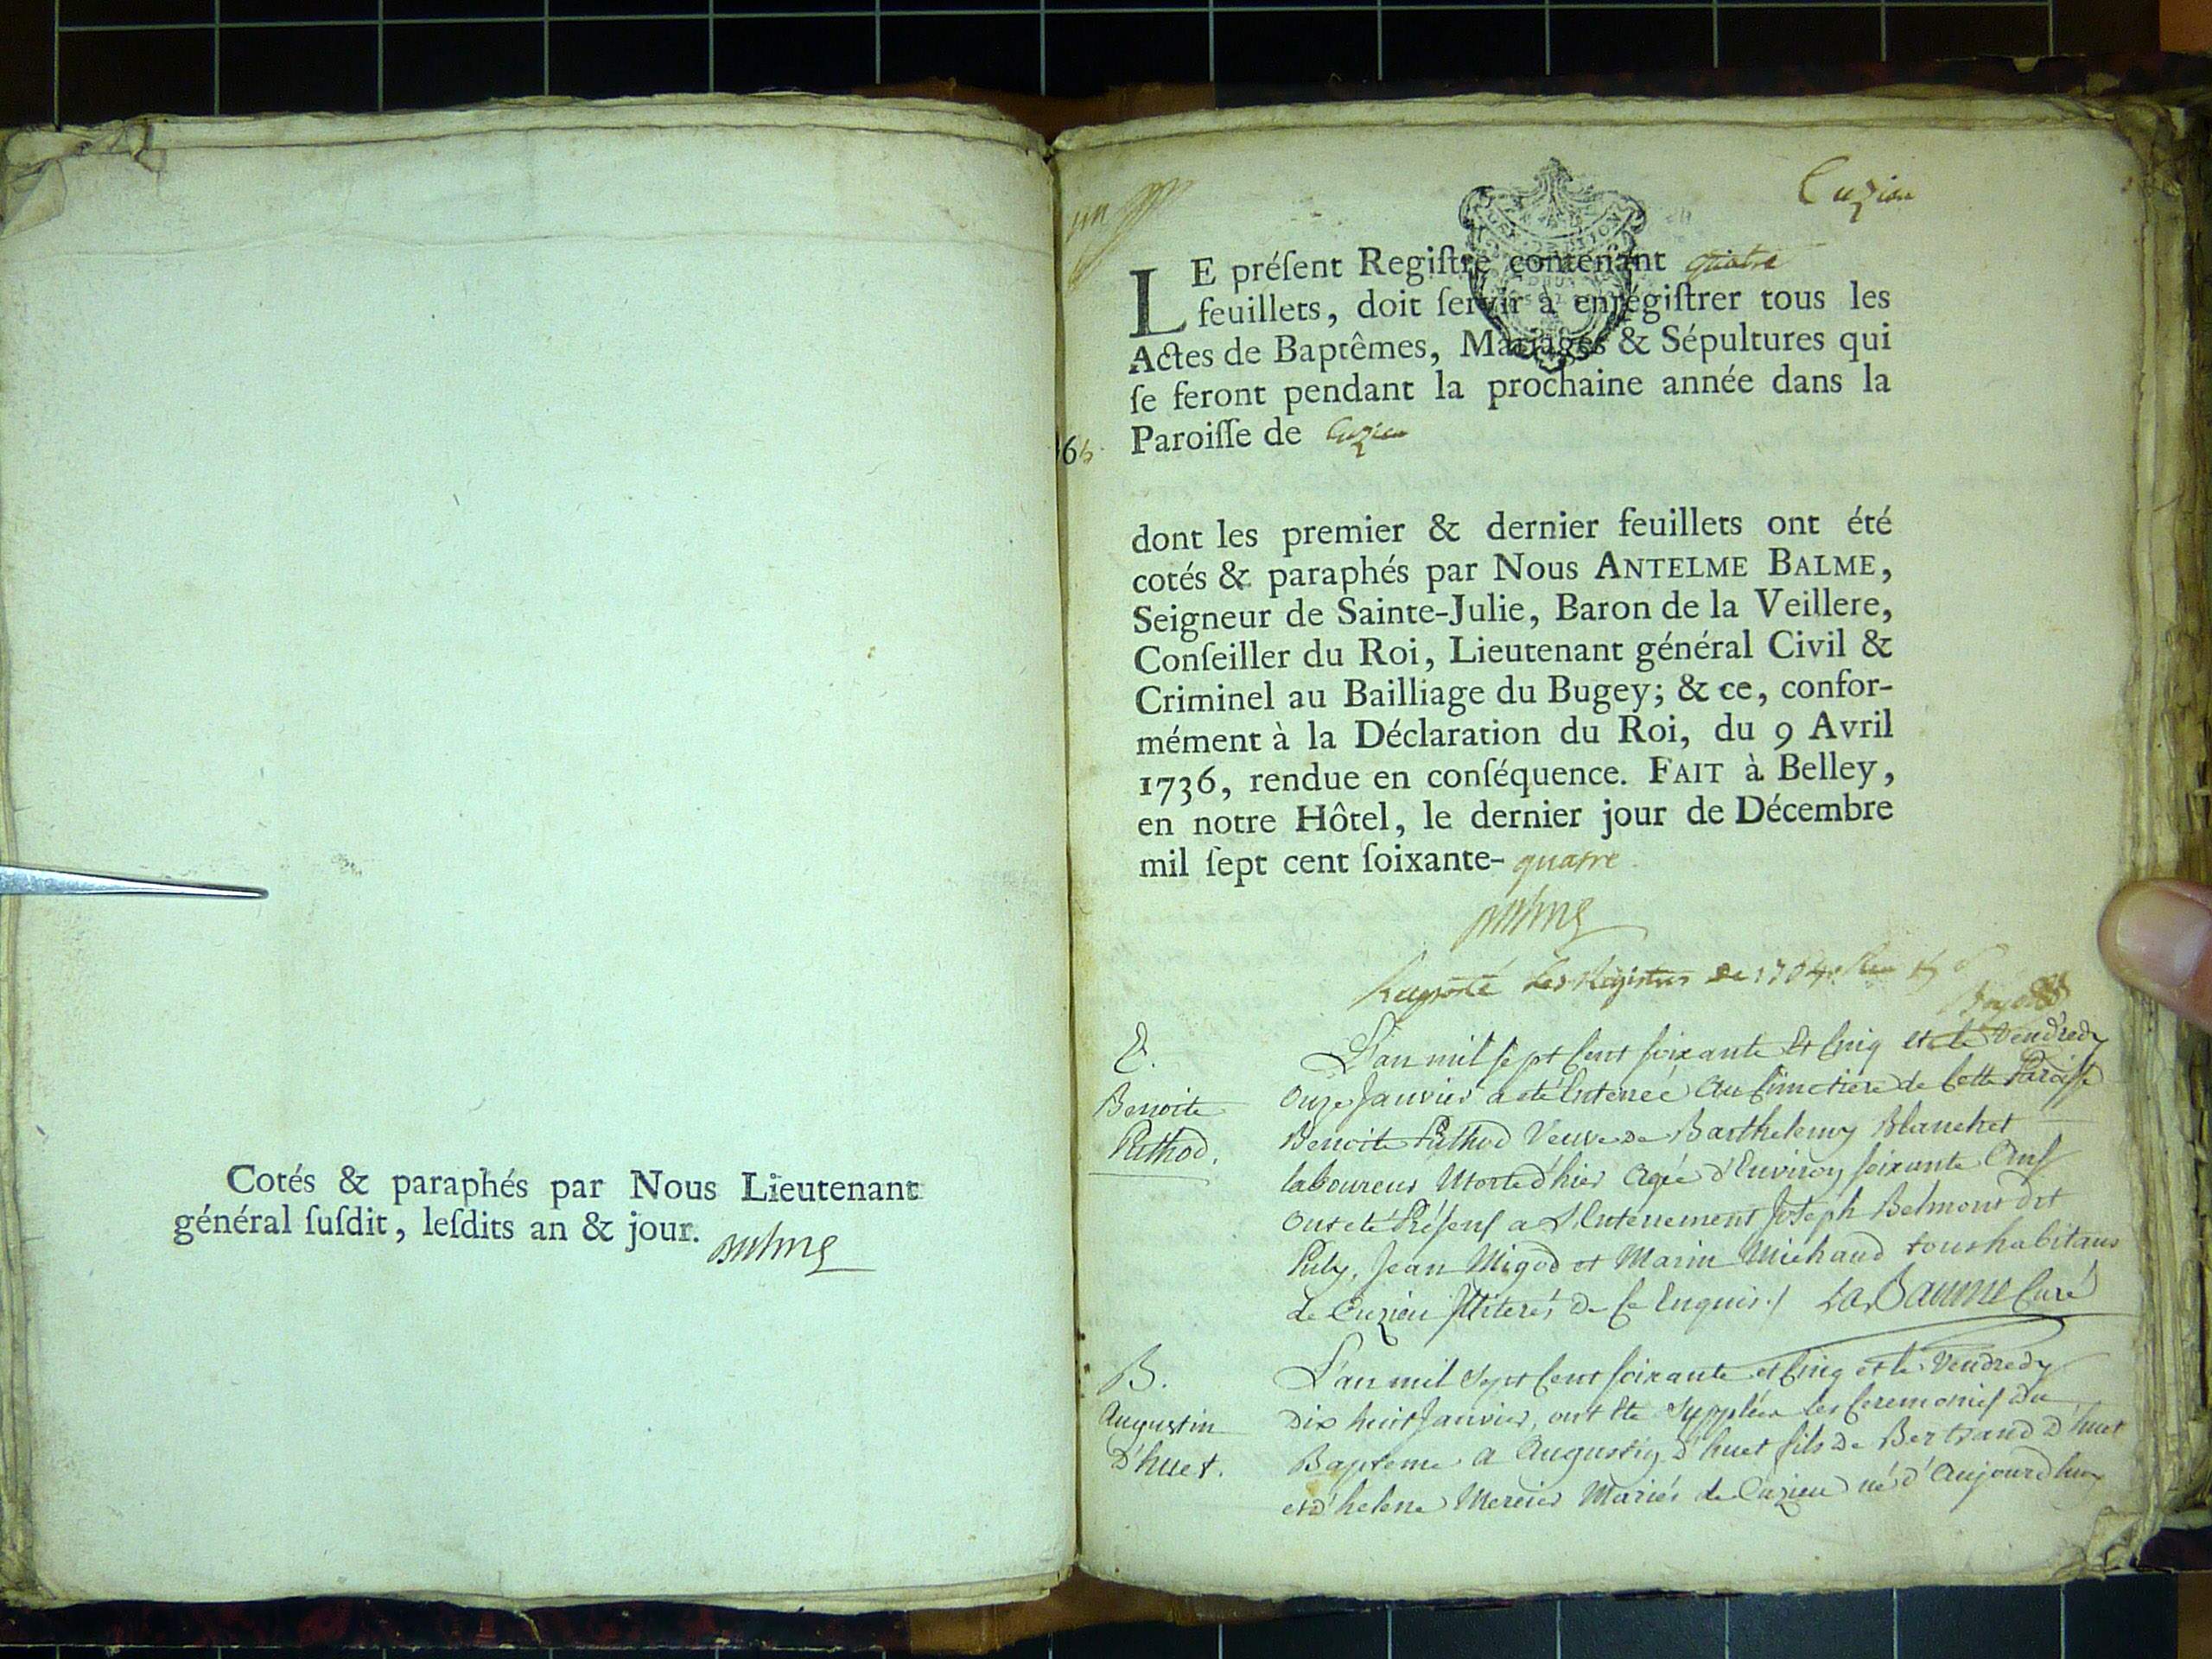 Cotés & paraphés par Nous Lieutenant
général ſuſdit, leſdits an & jour.
Balme
un
Cuzieu
LE préſent Regiſtre contenant quatre
feuillets, doit ſervir à enrégiſtrer tous les
Actes de Baptêmes, Mariages & Sépultures qui
ſe feront pendant la prochaine année dans la
Paroiſſe de Cuzieu
dont les premier & dernier feuillets ont été
cotés & paraphés par Nous ANTELME BALME,
Seigneur de Sainte-Julie, Baron de la Veillere,
Conſeiller du Roi, Lieutenant général Civil &
Criminel au Bailliage du Bugey; & ce, confor-
mément à la Déclaration du Roi, du 9 Avril
1736, rendue en conſéquence. FAIT à Belley,
en notre Hôtel, le dernier jour de Décembre
mil ſept cent ſoixante- quatre.
Balme
Raporté les Registres de 1764.
E.
Benoite
Puthod.
L'an mil sept Cent soixante Et Cinq et le Vendredy
Onze Janvier a eté Enterreé Au Cimetiere de Cette Paroisse
Benoite Puthod Veuve de Barthelemy Blanchet
laboureur Morte d'hier Ageé d'Environ soixante Ans
Ont eté Présens a L'Enterrement Joseph Belmont dit
Puly, Jean Migod et Marin Michaud tous habitans
de Cuzieu Illiterés de Ce Enquis./ LaBaume Curé
B.
Augustin
D'huet.
L'an mil Sept Cent soixante et Cinq et le Vendredy
Dix huit Janvier, ont Ete Suppléer les Ceremonies du
Bapteme a Augustin D'huet fils de Bertrand D'huet
et d'helene Mercier Mariés de Cuzieu né d'Aujourdhuy